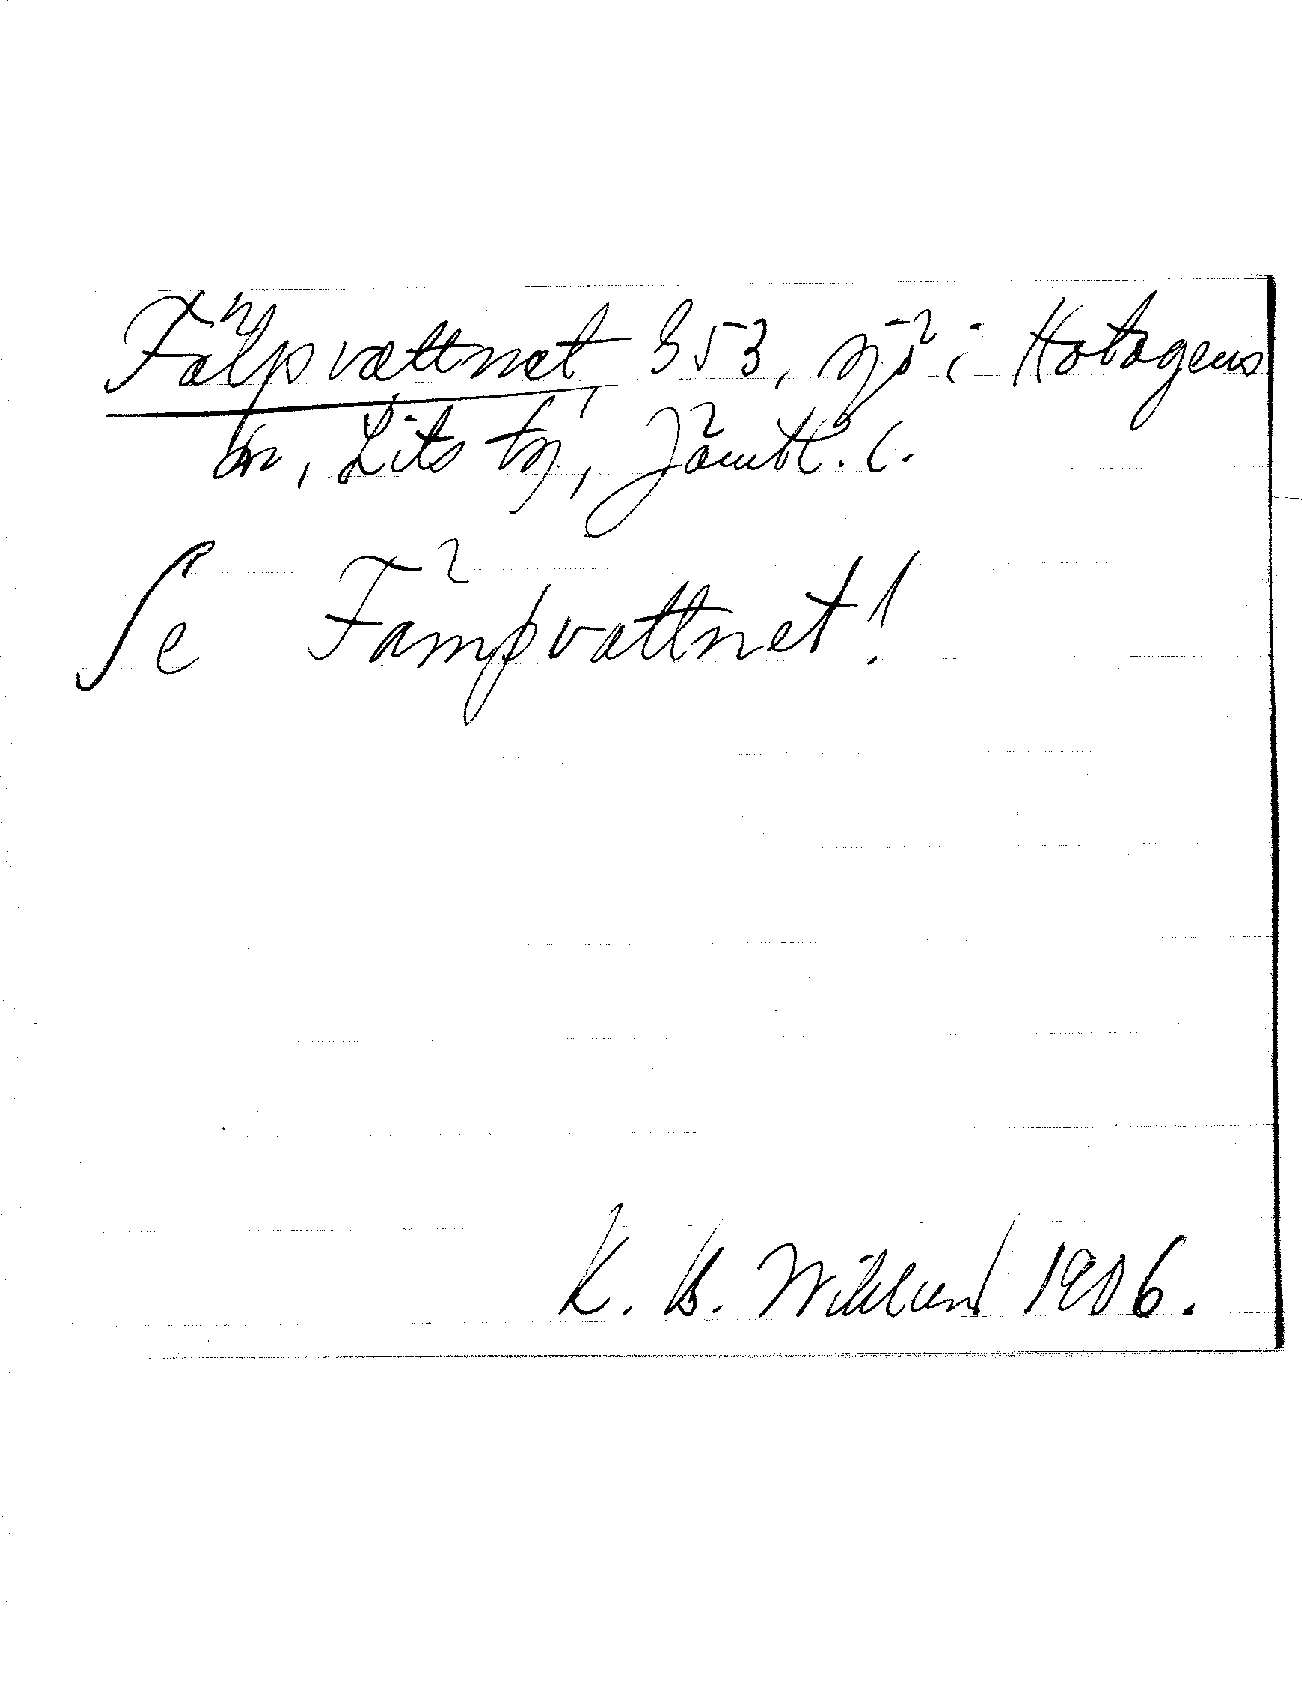 Fälpvattnet, 353, sjö i Hotagens
sn, Lits tg, Jämtl. l.
Se Fämpvattnet!
K. B. Wiklund 1906.